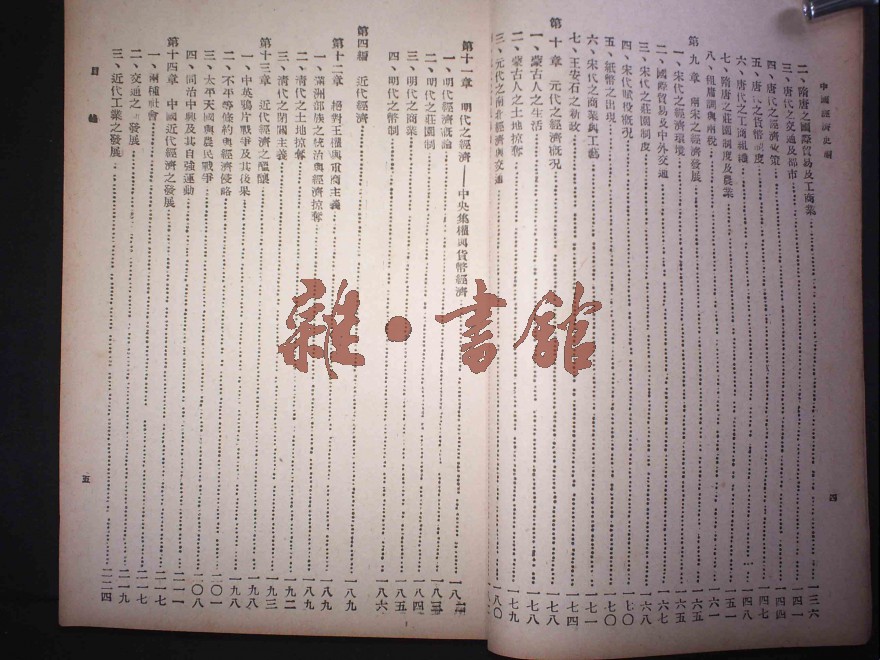 中國經濟史綱
二、隋唐之國際貿易及工商業 一三六
三、唐代之交通及都市 一四一
四、唐代之經濟政策 一四四
五、唐代之貨幣制度 一四七
六、唐代之工商組織 一四八
七、隋唐之莊園制度及農業 一五一
八、租庸調與兩稅 一六一
第九章 兩宋之經濟發展 一六五
一、宋代之經濟環境 一六五
二、國際貿易及中外交通 一六七
三、宋代之莊園制度 一六八
四、宋代賦役概況 一七〇
五、紙幣之出現 一七〇
六、宋代之商業與工藝 一七一
七、王安石之新政 一七四
第十章 元代之經濟概況 一七八
一、蒙古人之生活 一七八
二、蒙古人之土地掠奪 一七九
三、元代之南北經濟與交通 一八〇
四
第十一章 明代之經濟——中央集權與貨幣經濟
一、明代經濟概論 一八三
二、明代之莊園制 一八三
三、明代之商業 一八四
四、明代之幣制 一八五
一八六
第四編 近代經濟 一八九
第十二章 絕對王權與重商主義 一八九
一、滿洲部族之統治與經濟掠奪 一八九
二、清代之土地掠奪 一九二
三、清代之閉關主義 一九三
第十三章 近代經濟之醞釀 一九八
一、中英鴉片戰爭及其後果 一九八
二、不平等條約與經濟侵略 二〇一
三、太平天國與農民戰爭 二〇八
四、同治中興及其自強運動 二一一
第十四章 中國近代經濟之發展 二一七
一、兩種社會 二一七
二、交通之發展 二一九
三、近代工業之發展 二二四
目錄
五
雜·書館